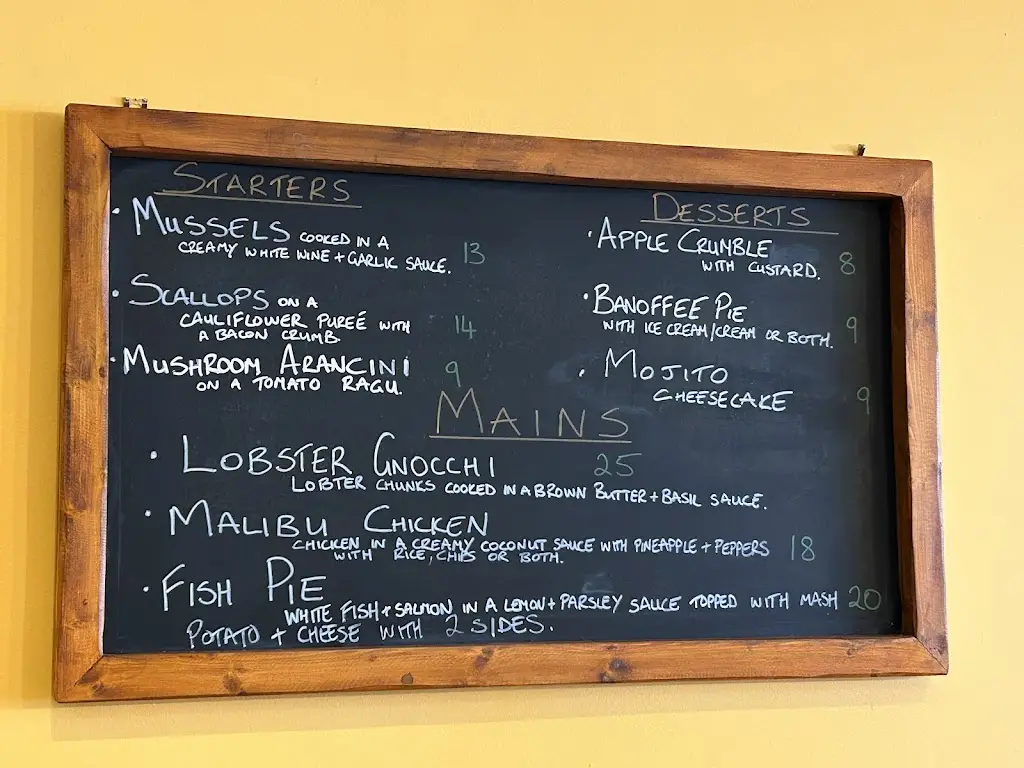 STARTERS
· MUSSELS COOKED IN A
CREAMY WHITE WINE + GARLIC SAUCE. 13
· SCALLOPS ON A
CAULIFLOWER PUREÉ WITH 14
A BACON CRUMB
· MUSHROOM ARANCINI 9
ON A TOMATO RAGU.
DESSERTS
· APPLE CRUMBLE
WITH CUSTARD. 8
· BANOFFEE PIE
WITH ICE CREAM/CREAM OR BOTH. 9
· MOJITO
CHEESECAKE 9
MAINS
· LOBSTER GNOCCHI 25
LOBTER CHUNKS COOKED IN A BROWN BUTTER + BASIL SAUCE.
· MALIBU CHICKEN
CHICKEN IN A CREAMY COCONUT SAUCE WITH PINEAPPLE + PEPPERS 18
WITH RICE, CHIPS OR BOTH.
· FISH PIE
WHITE FISH + SALMON IN A LEMON + PARSLEY SAUCE TOPPED WITH MASH 20
POTATO + CHEESE WITH 2 SIDES.